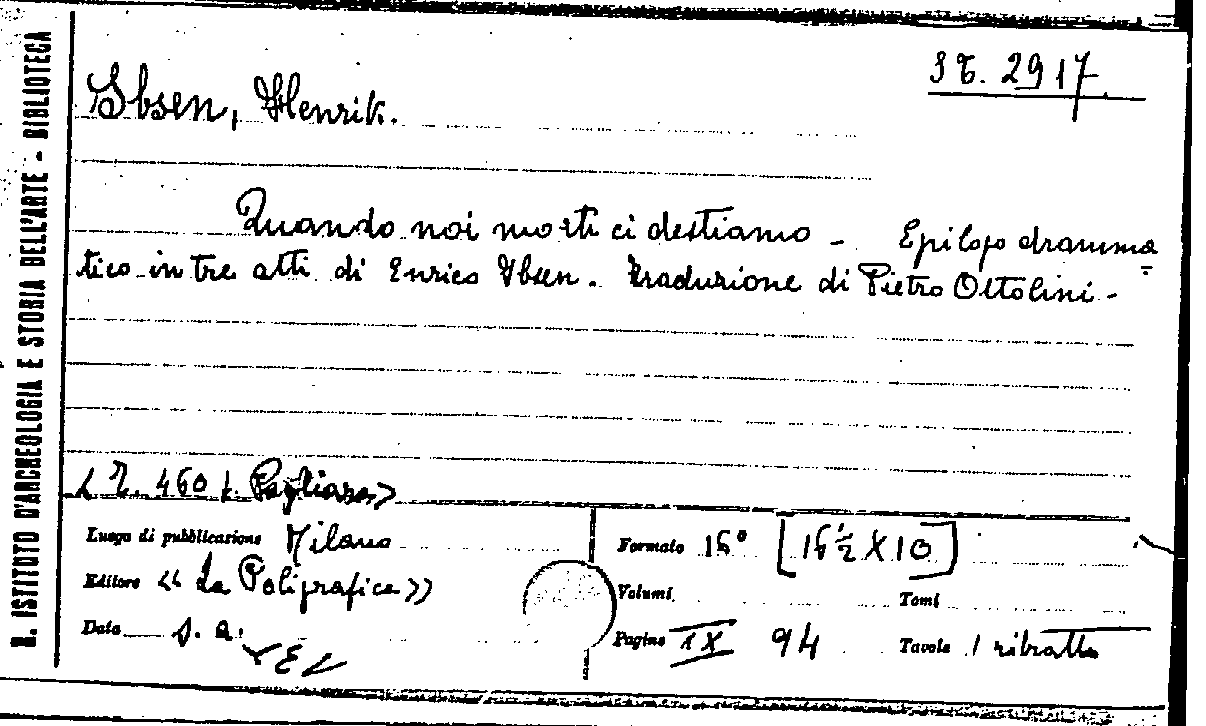 R. ISTITUTO D'ARCHEOLOGIA E STORIA DELL'ARTE - BIBLIOTECA
St. 2917
Ibsen, Henrik.
Quando noi morti ci destiamo - Epilogo dramma
tico in tre atti di Enrico Ibsen. Traduzione di Pietro Ottolini -
460
Luogo di pubblicazione Milano
Editore "La Poligrafica"
Data s. a.
Formato 16° [16½ X 10]
Volumi Tomi
Pagine IX 94 Tavole 1 ritratto